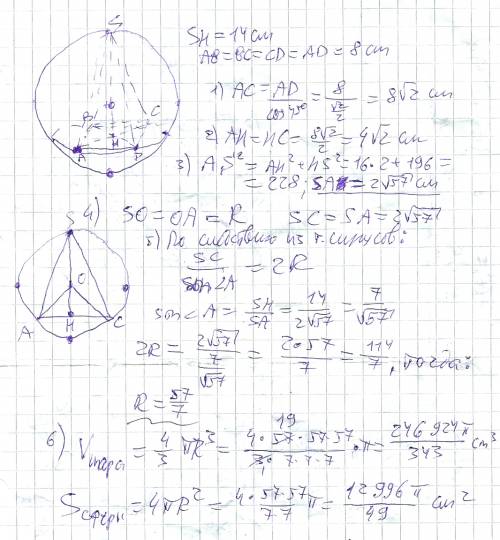 SH = 14 см
AB = BC = CD = AD = 8 см
1) AC = AD / cos 45° = 8 / (√2/2) = 8√2 см
2) AH = HC = 8√2 / 2 = 4√2 см
3) AS² = AH² + HS² = 16·2 + 196 =
= 228; SA = 2√57 см
4) SO = OA = R SC = SA = 2√57
5) По следствию из т. синусов:
SC / sin∠A = 2R
sin∠A = SH / SA = 14 / 2√57 = 7 / √57
2R = 2√57 / (7/√57) = 2·57 / 7 = 114 / 7, тогда:
R = 57 / 7
6) Vшара = 4/3 πR³ = 4·57·57·57 / 3·7·7·7 · π = 246 924π / 343 см³
19
1
Sсферы = 4πR² = 4·57·57 / 7·7 π = 12 996π / 49 см²
S
O
B
C
A
H
D
S
O
A
H
C